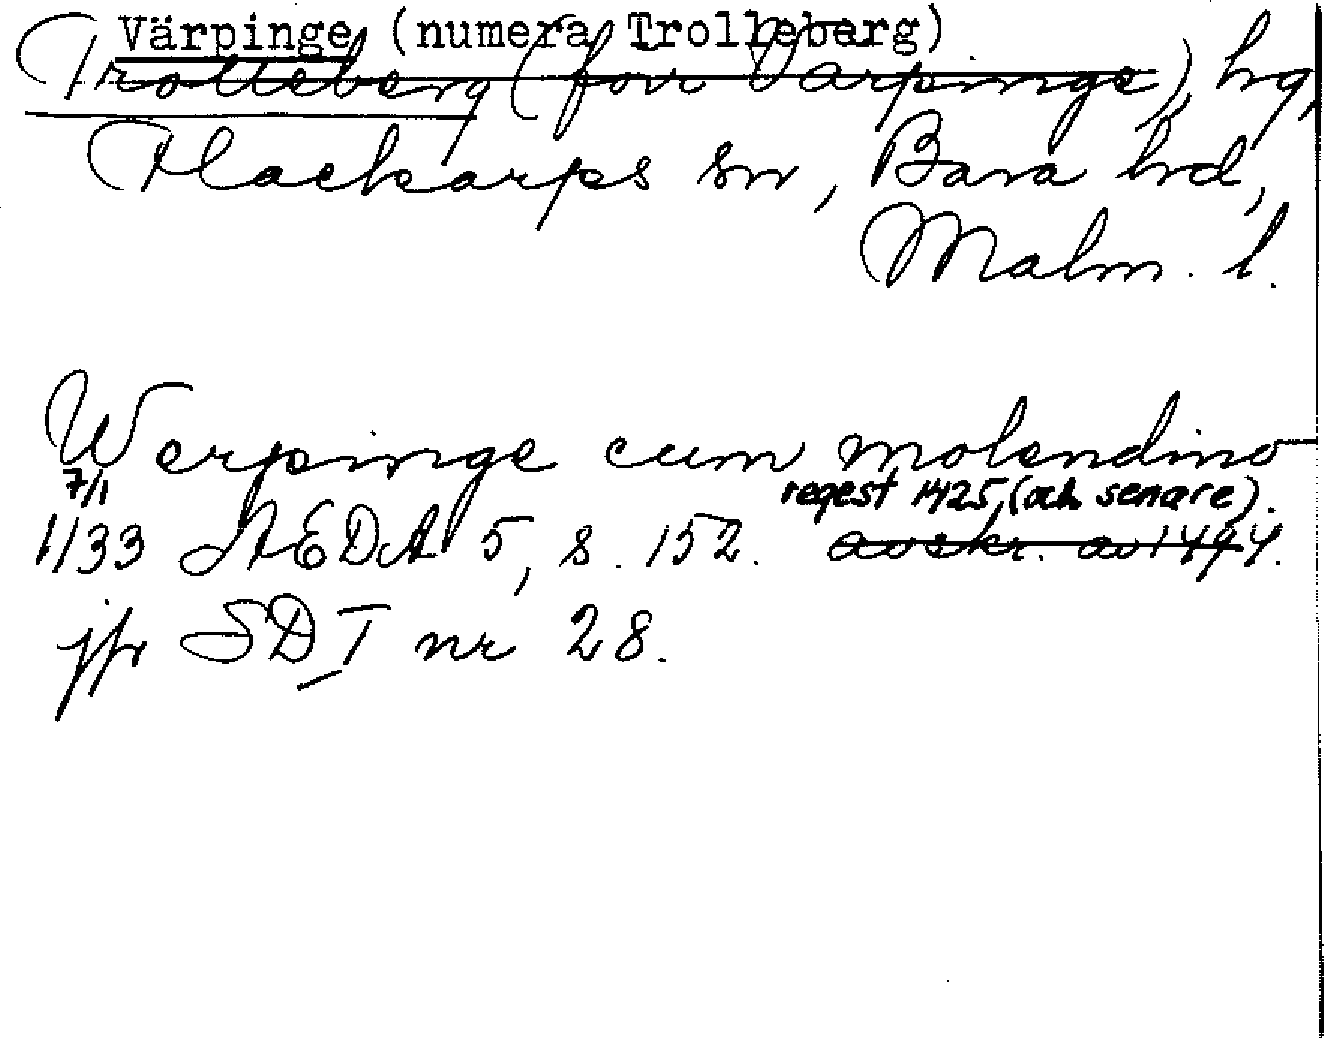 Värpinge (numera Trolleberg)
Trolleberg (förr Värpinge), hg,
Flackarps sn, Bara hd,
Malm. l.
Werpinge cum molendino
7/1 regest 1425 (och senare).
1133 ÆDA 5, s. 152. avskr. av 1494.
jfr SD I nr 28.